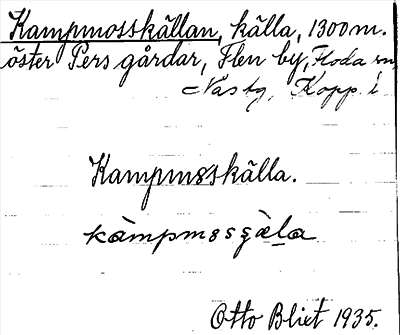 Kampmosskällan, källa, 1300 m.
öster Pers gårdar, Flen by, Floda sn,
Nasbg, Kopp. l.
Kampmosskälla.
kàmpmosʒæ̀la
Otto Blixt 1935.